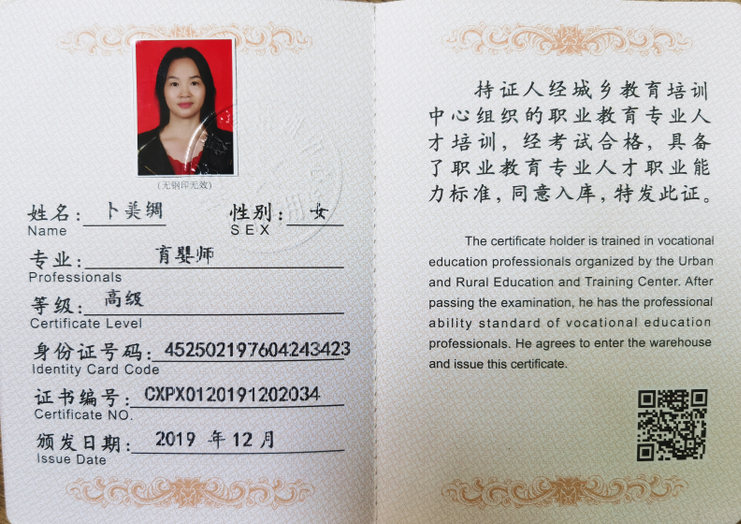 (无钢印无效)
姓名：卜美绸 性别：女
Name SEX
专业：育婴师
Professionals
等级：高级
Certificate Level
身份证号码：452502197604243423
Identity Card Code
证书编号：CXPX0120191202034
Certificate NO.
颁发日期：2019 年 12 月
Issue Date
持证人经城乡教育培训
中心组织的职业教育专业人
才培训，经考试合格，具备
了职业教育专业人才职业能
力标准，同意入库，特发此证。
The certificate holder is trained in vocational
education professionals organized by the Urban
and Rural Education and Training Center. After
passing the examination, he has the professional
ability standard of vocational education
professionals. He agrees to enter the warehouse
and issue this certificate.